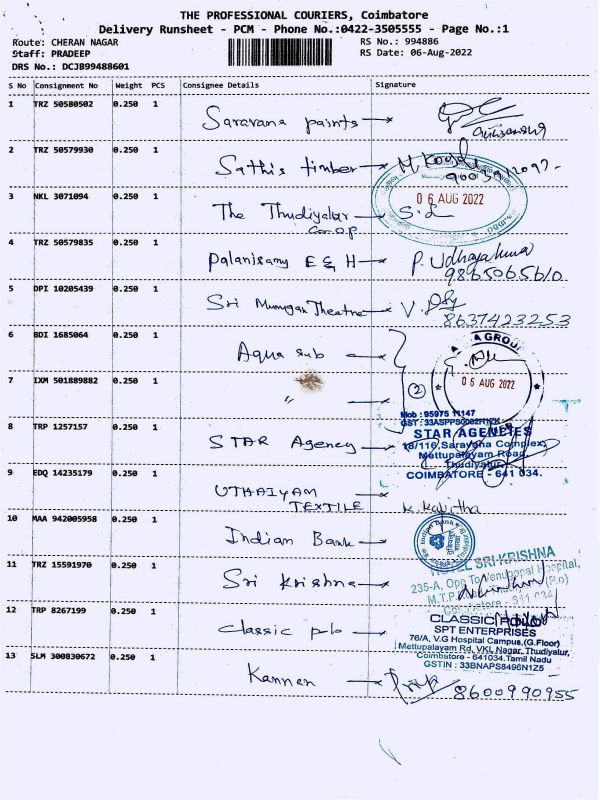 THE PROFESSIONAL COURIERS, Coimbatore
Delivery Runsheet - PCM - Phone No.:0422-3505555 - Page No.:1
Route: CHERAN NAGAR
RS No.: 994886
Staff: PRADEEP
RS Date: 06-Aug-2022
DRS No.: DCJB99488601
S No Consignment No Weight PCS Consignee Details Signature
1 TRZ 50580502 0.250 1 Saravana paints
2 TRZ 50579930 0.250 1 Sathis timber
3 NKL 3071094 0.250 1 The Thudiyalur S.L
Co.O.P.
06 AUG 2022
4 TRZ 50579835 0.250 1 Palanisamy E & H P. Udhayakumar
9865065610
5 DPI 10205439 0.250 1 Sri Murugan Theatre V.
8637423253
6 BDI 1685064 0.250 1 Aqua sub
GROUP
7 IXM 501889882 0.250 1 〃 2
06 AUG 2022
Mob : 95975 11147
8 TRP 1257157 0.250 1 STAR Agency
STAR AGENCIES
18/116, Saravana Complex,
Mettupalayam Road,
Thudiyalur,
COIMBATORE - 641 034.
9 EDQ 14235179 0.250 1 UTHAIYAM
TEXTILE K. Kavitha
10 MAA 942005958 0.250 1 Indian Bank
Indian Bank
11 TRZ 15591970 0.250 1 Sri Krishna
HOTEL SRI KRISHNA
235-A, Opp To Venugopal Hospital,
12 TRP 8267199 0.250 1 Classic polo
CLASSIC POLO
SPT ENTERPRISES
76/A, V.G Hospital Campus,(G.Floor)
Mettupalayam Rd, VKL Nagar, Thudiyalur,
Coimbatore - 641034.Tamil Nadu
GSTIN : 33BNAPS8496N1Z5
13 SLM 300830672 0.250 1 Kannan
8600990955